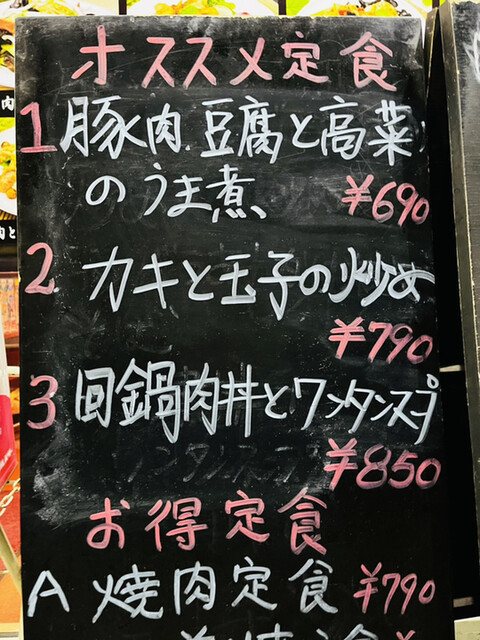 オススメ定食
1 豚肉.豆腐と高菜
のうま煮 ¥690
2 カキと玉子の炒め
¥790
3 回鍋肉丼とワンタンスープ
¥850
お得定食
A 焼肉定食 ¥790